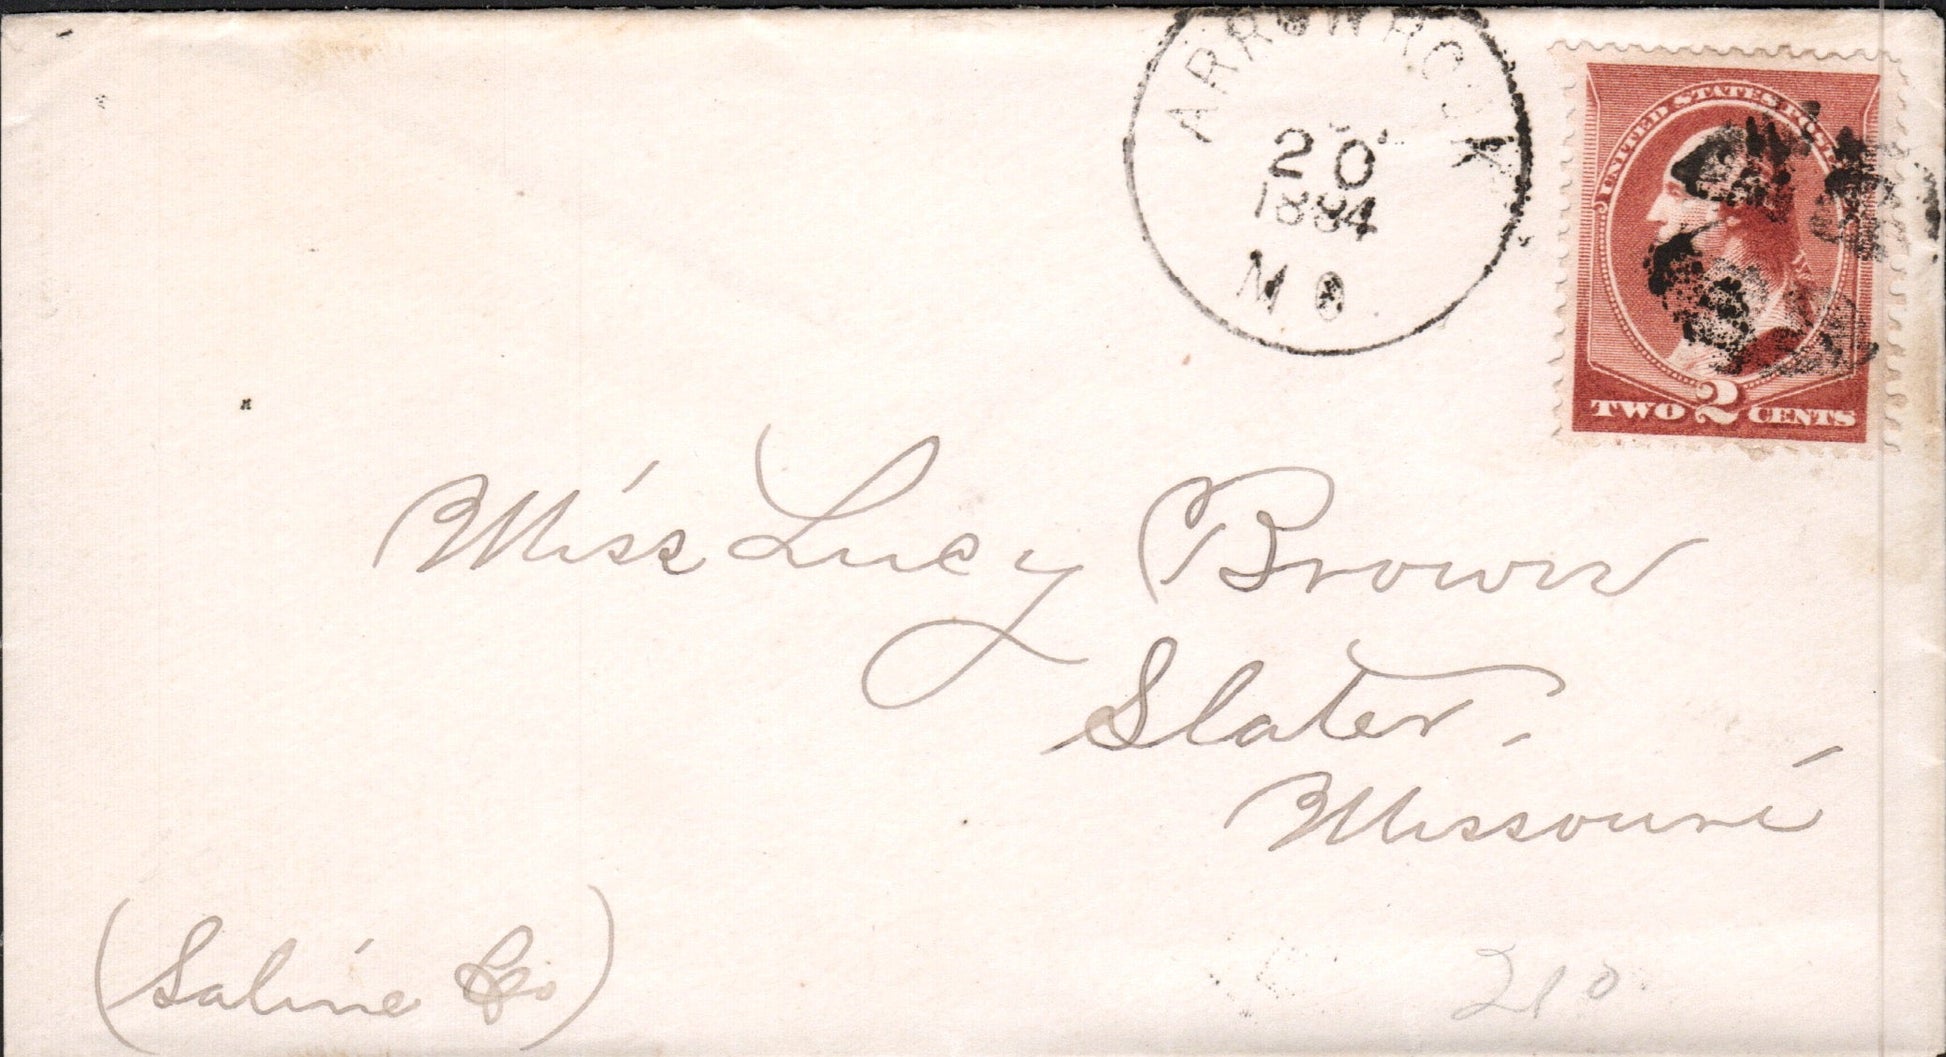 ARROW ROCK
20
1884
MO.
UNITED STATES POSTAGE
TWO 2 CENTS
Miss Lucy Brown
Slater,
Missouri
(Saline Co.)
210